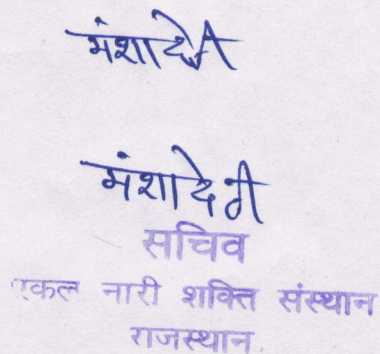 मंशादेवी
मंशादेवी
सचिव
एकल नारी शक्ति संस्थान
राजस्थान